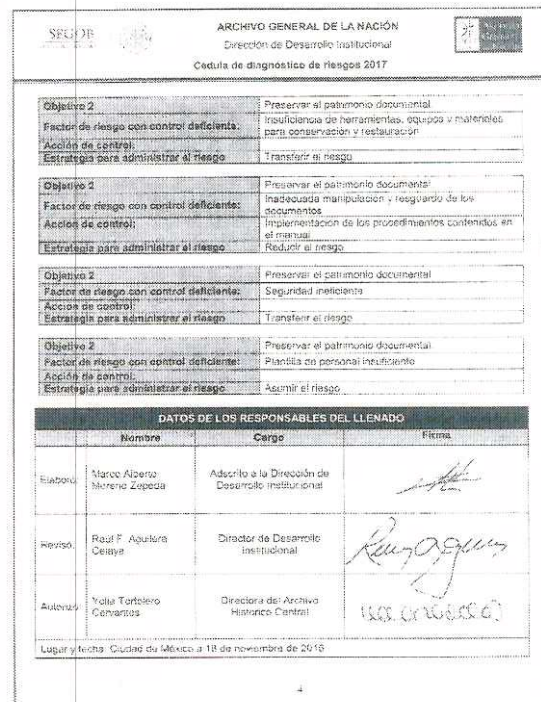 SEGOB
ARCHIVO GENERAL DE LA NACIÓN
Dirección de Desarrollo Institucional
Cedula de diagnóstico de riesgos 2017
Objetivo 2 Preservar el patrimonio documental
Factor de riesgo con control deficiente: Insuficiencia de herramientas, equipos y materiales
para conservación y restauración
Acción de control:
Estrategia para administrar el riesgo Transferir el riesgo
Objetivo 2 Preservar el patrimonio documental
Factor de riesgo con control deficiente: Inadecuada manipulación y resguardo de los
documentos
Acción de control: Implementación de los procedimientos contenidos en
el manual
Estrategia para administrar el riesgo Reducir el riesgo
Objetivo 2 Preservar el patrimonio documental
Factor de riesgo con control deficiente: Seguridad ineficiente
Acción de control:
Estrategia para administrar el riesgo Transferir el riesgo
Objetivo 2 Preservar el patrimonio documental
Factor de riesgo con control deficiente: Plantilla de personal insuficiente
Acción de control:
Estrategia para administrar el riesgo Asumir el riesgo
DATOS DE LOS RESPONSABLES DEL LLENADO
Nombre Cargo Firma
Elaboró: Marco Alberto
Moreno Zepeda
Adscrito a la Dirección de
Desarrollo Institucional
Revisó: Raúl F. Aguilera
Celaya
Director de Desarrollo
Institucional
Autorizó: Yolia Tortolero
Cervantes
Directora del Archivo
Histórico Central
Lugar y fecha: Ciudad de México a 18 de noviembre de 2016
4